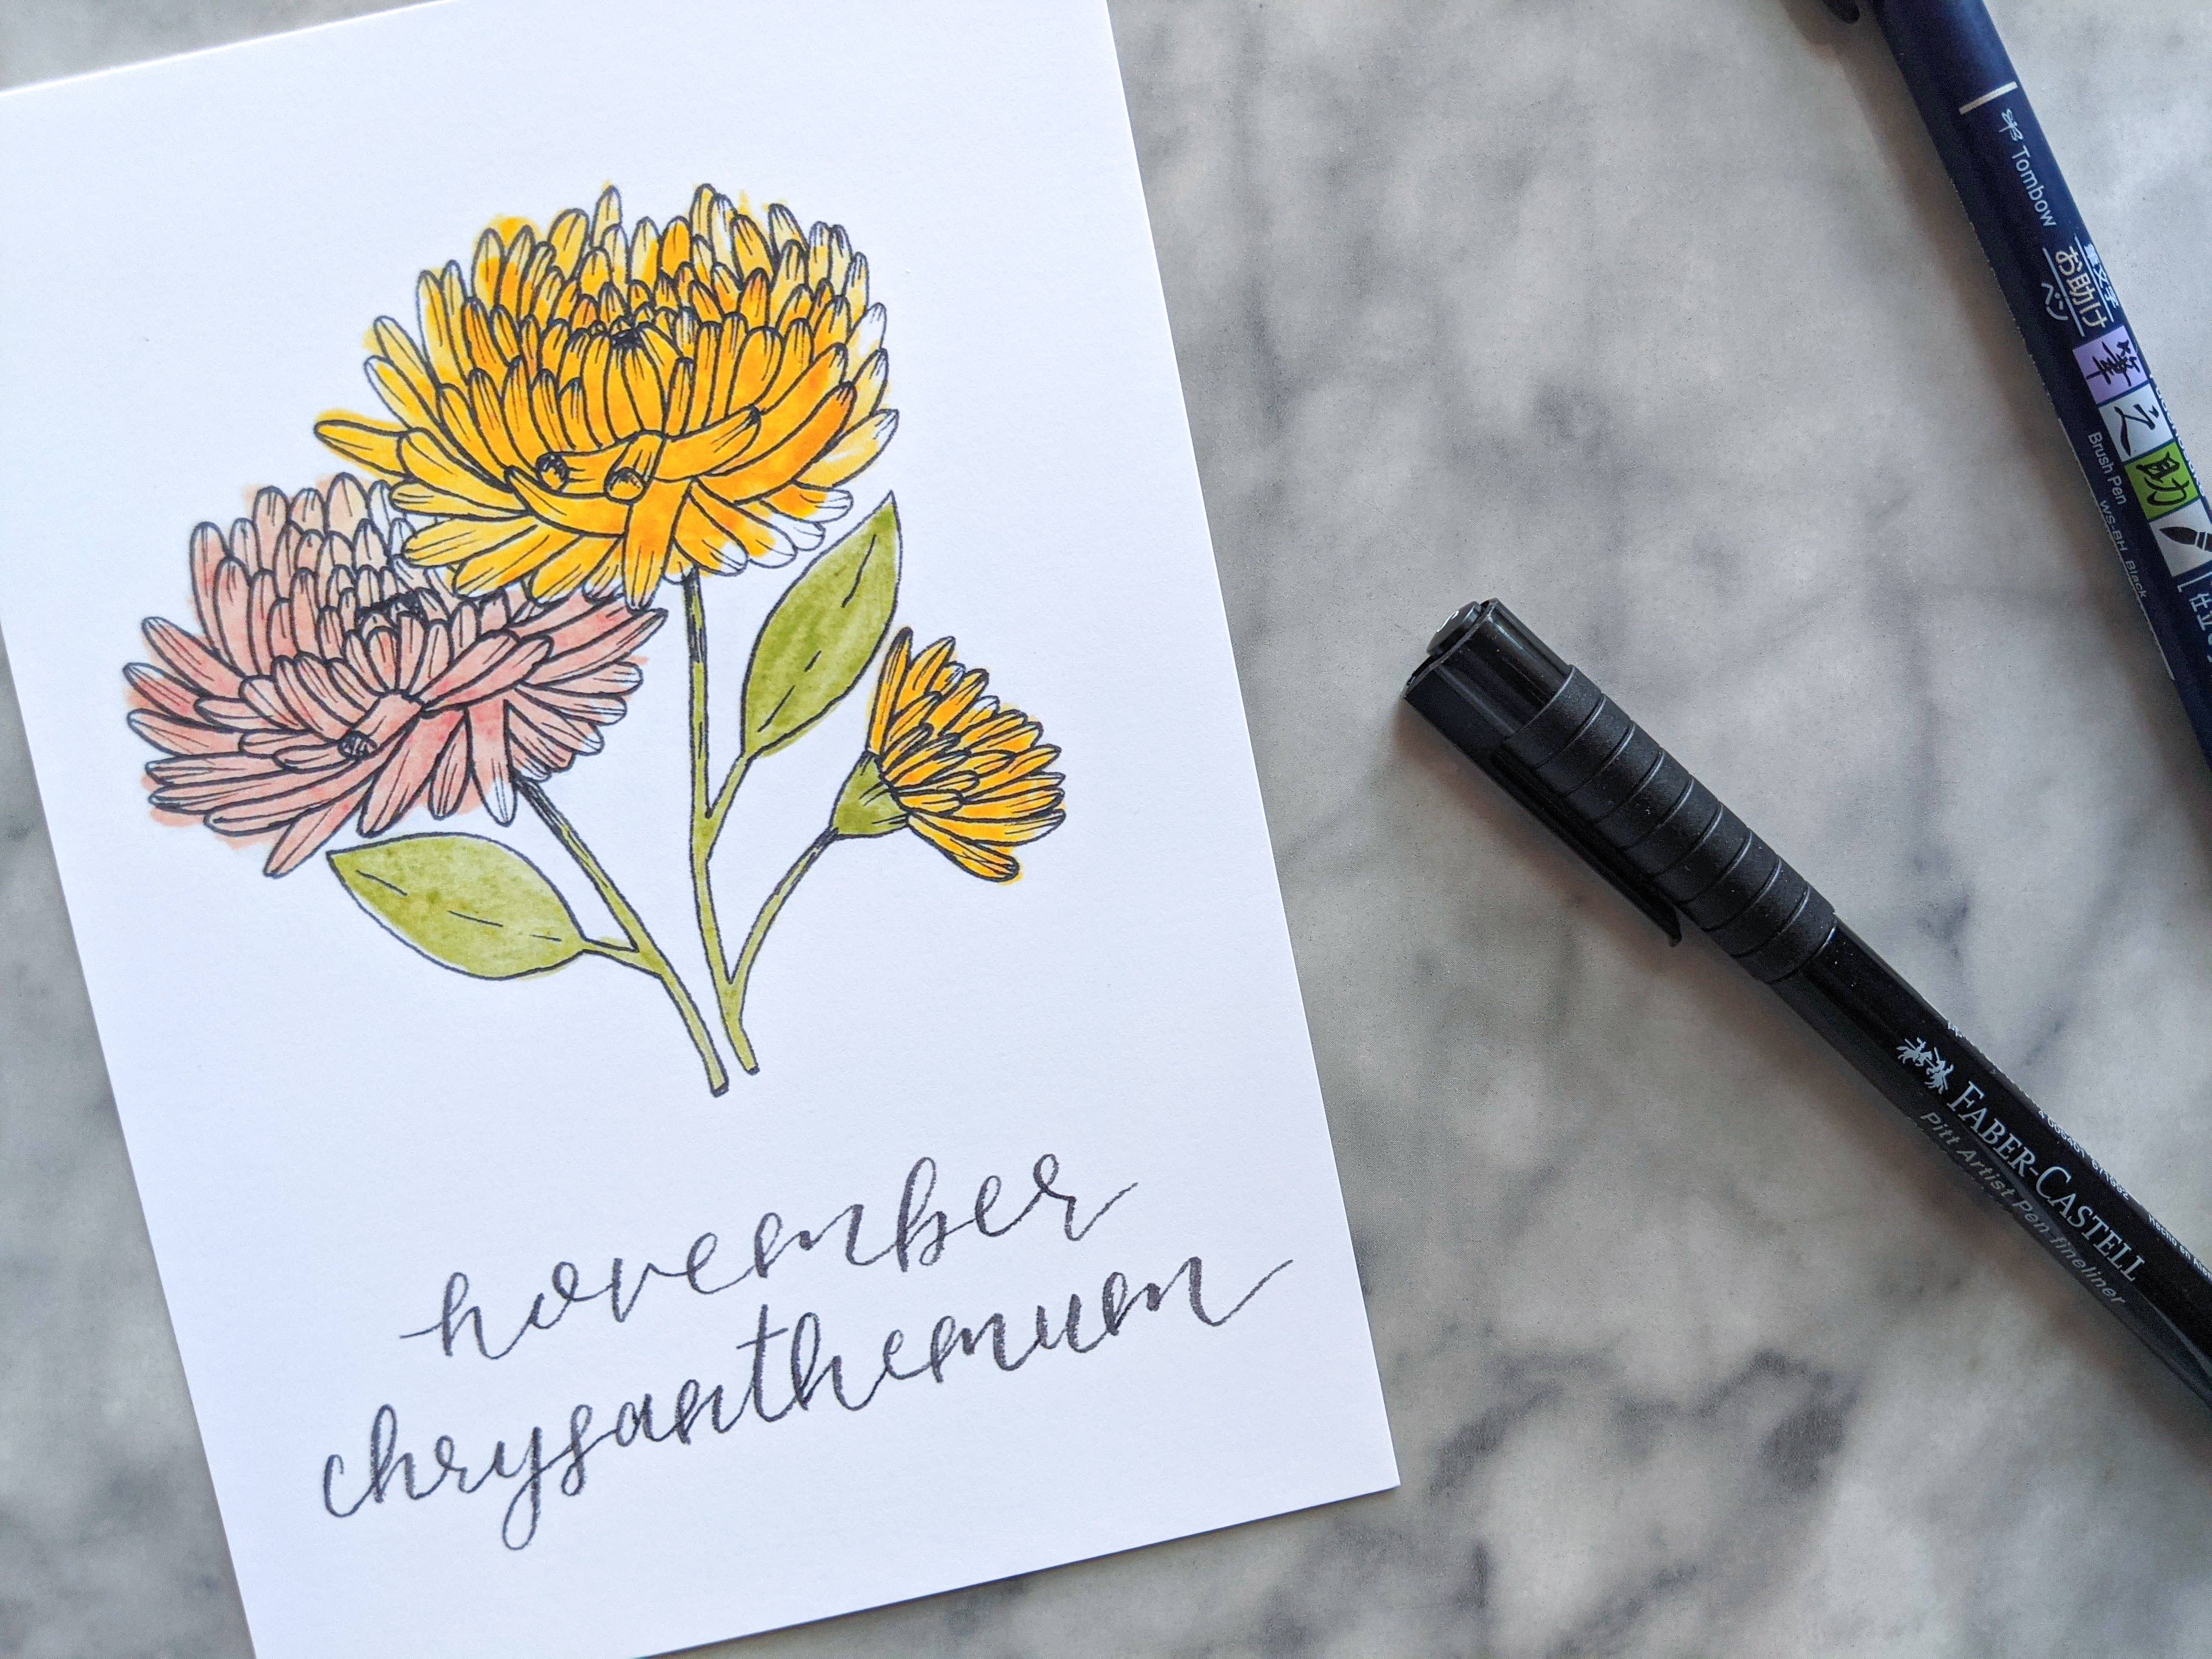 november
chrysanthemum
Tombow
筆文字
お助け
ペン
筆之助
Brush Pen WS-BH Black
FABER-CASTELL
Pitt Artist Pen-fineliner